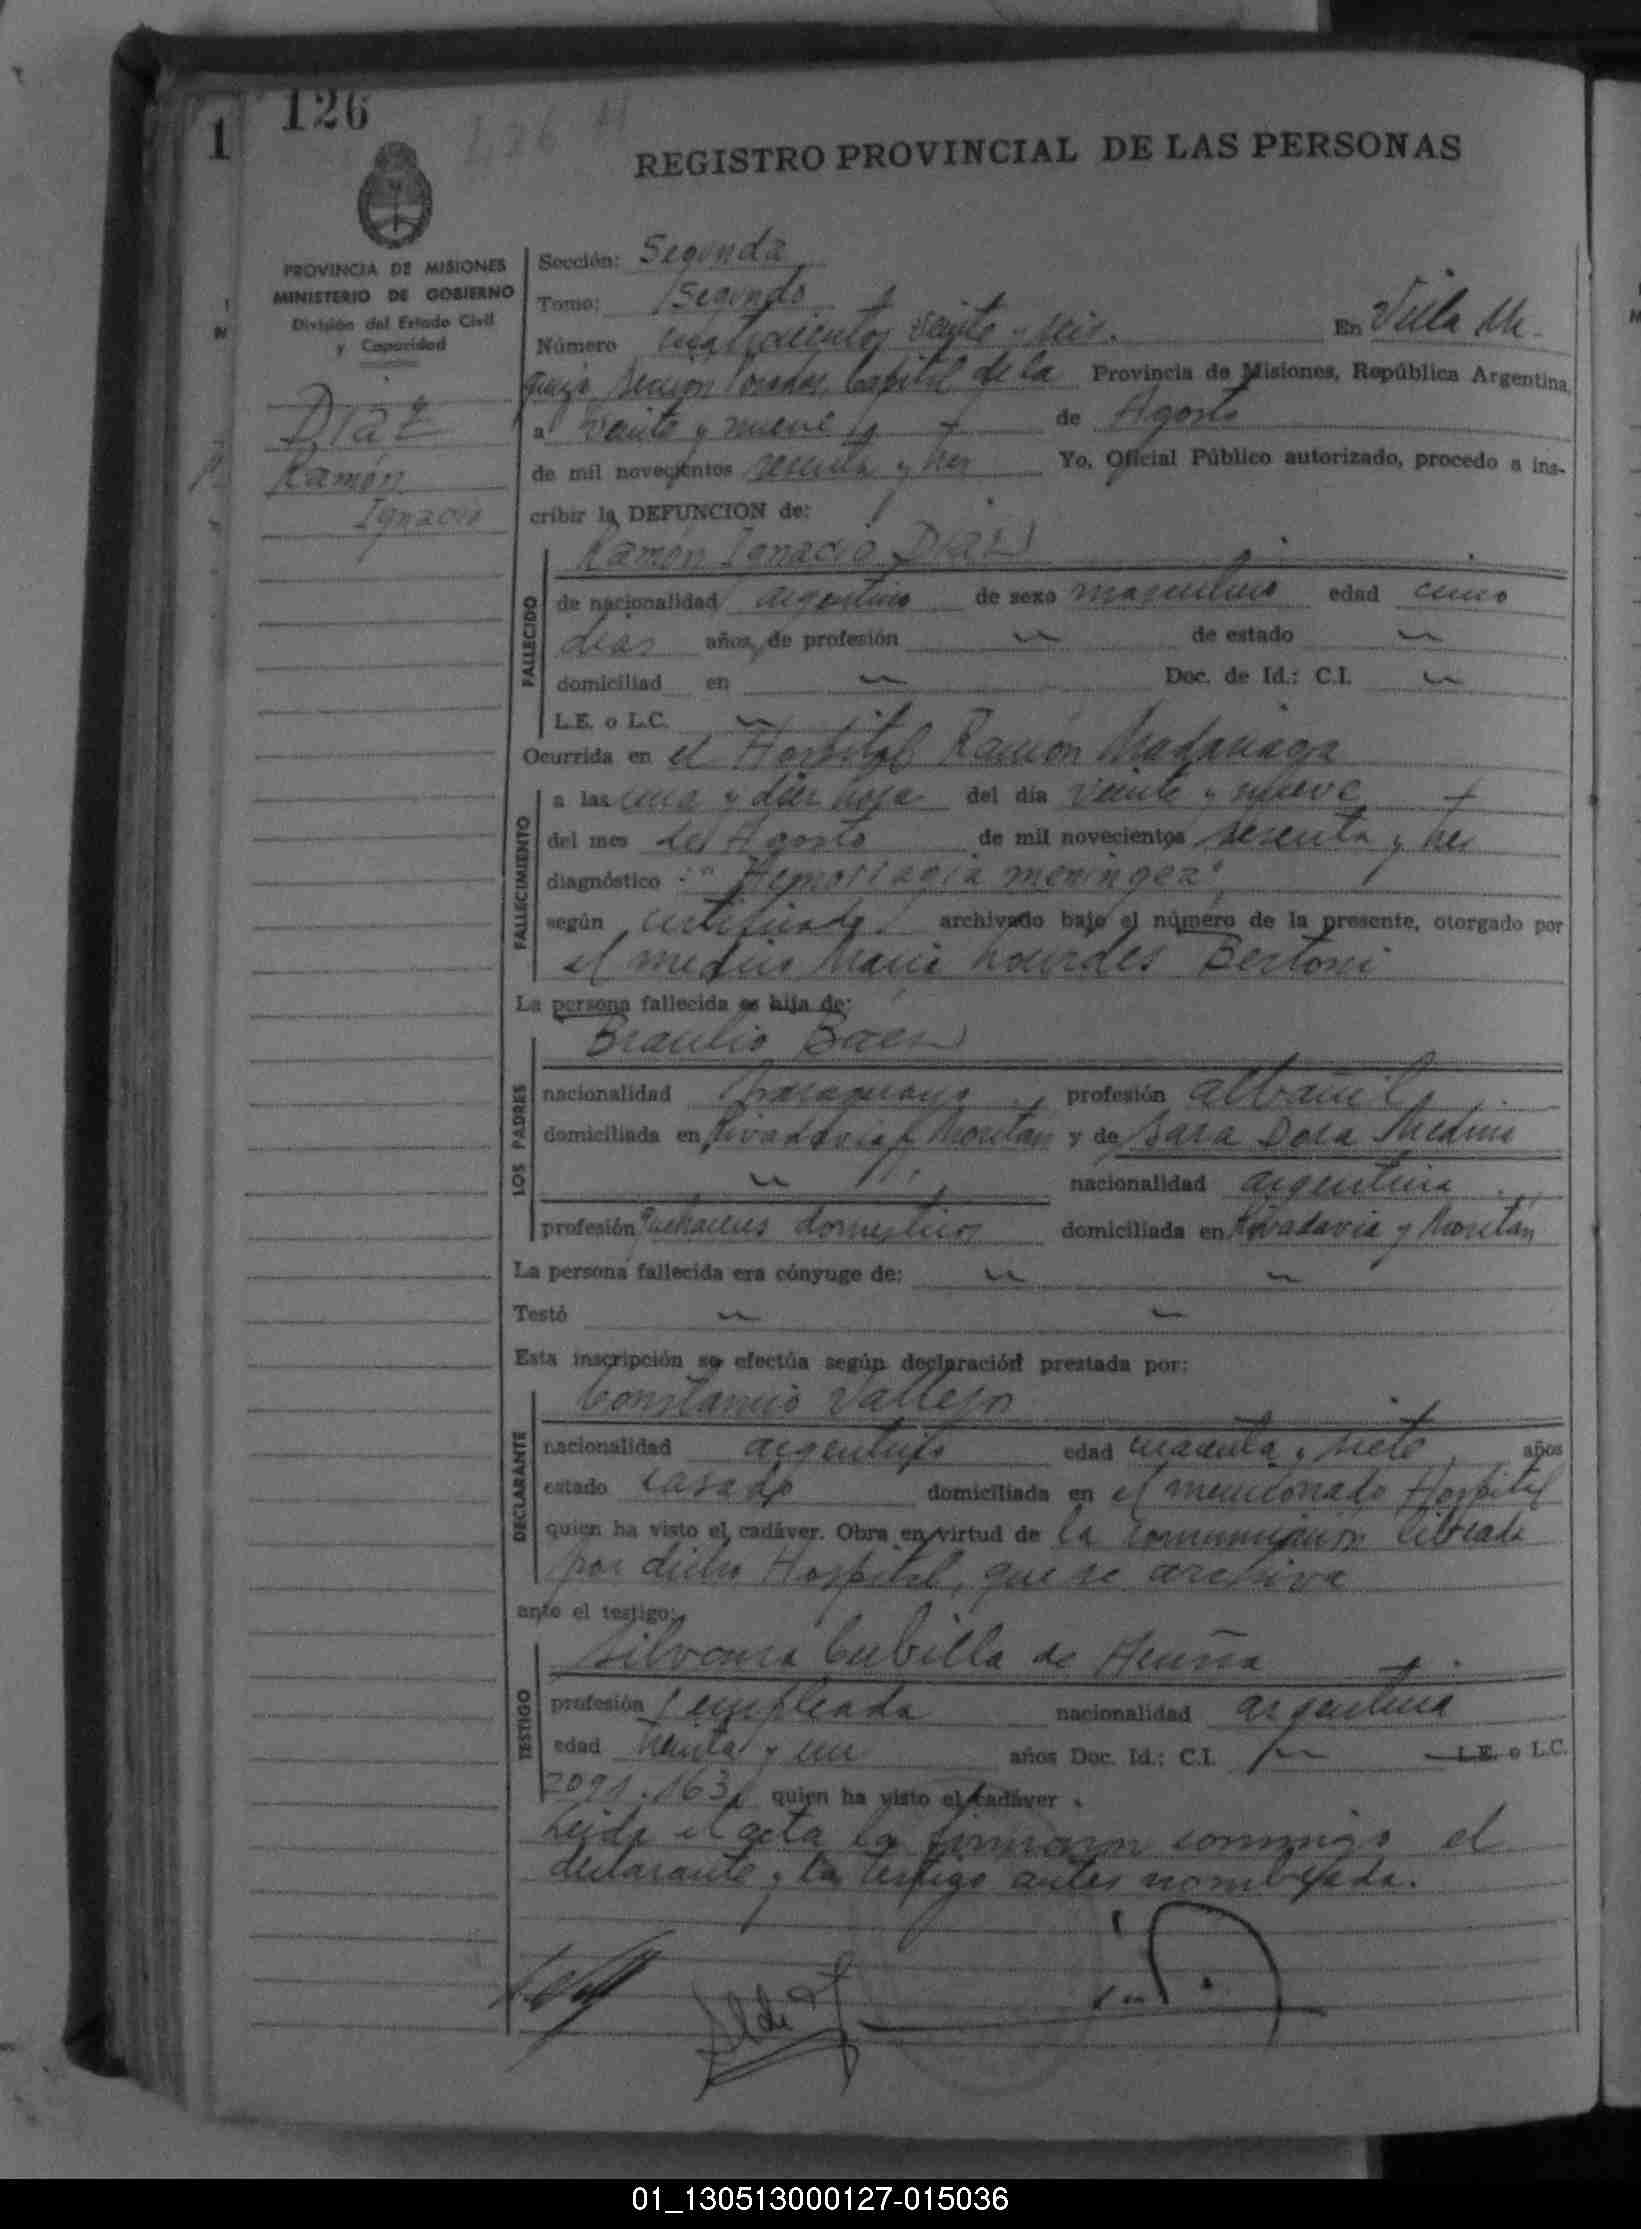 126
1
426 H
REGISTRO PROVINCIAL DE LAS PERSONAS
PROVINCIA DE MISIONES
MINISTERIO DE GOBIERNO
División del Estado Civil
y Capacidad
Diaz
Ramón
Ignacio
Sección: Segunda
Tomo: Segundo
Número cuatrocientos veinte y seis. En Villa Ur-
quiza, Seccion Posadas, Capital de la Provincia de Misiones, República Argentina,
a veinte y nueve de Agosto
de mil novecientos sesenta y tres Yo, Oficial Público autorizado, procedo a ins-
cribir la DEFUNCION de:
FALLECIDO
Ramón Ignacio Diaz
de nacionalidad argentino de sexo masculino edad cinco
dias años, de profesión de estado
domiciliad en Doc. de Id.: C.I.
L.E. o L.C.
Ocurrida en el Hospital Ramón Madariaga
FALLECIMIENTO
a las una y diez hora del día veinte y nueve
del mes de Agosto de mil novecientos sesenta y tres
diagnóstico : "Hemorragia meningea"
según certificado archivado bajo el número de la presente, otorgado por
el medico Maria Lourdes Bertoni
La persona fallecida es hija de:
LOS PADRES
Braulio Baez
nacionalidad paraguayo profesión albañil
domiciliada en Rivadavia y Moritán y de Sara Dora Medina
nacionalidad argentina
profesión Quehaceres domesticos domiciliada en Rivadavia y Moritán
La persona fallecida era cónyuge de:
Testó
Esta inscripción se efectúa según declaración prestada por:
DECLARANTE
Constancio Vallejos
nacionalidad argentino edad cuarenta y siete años
estado casado domiciliada en el mencionado Hospital
quien ha visto el cadáver. Obra en virtud de la comunicación librada
por dicho Hospital, que se archiva
ante el testigo:
TESTIGO
Silvana Cubilla de Acuña
profesión empleada nacionalidad argentina
edad treinta y un años Doc. Id.: C.I. L.E. o L.C.
2091.163 quien ha visto el cadáver.
Leida el acta la firmaron conmigo el
declarante y la testigo antes nombrada.
01_130513000127-015036